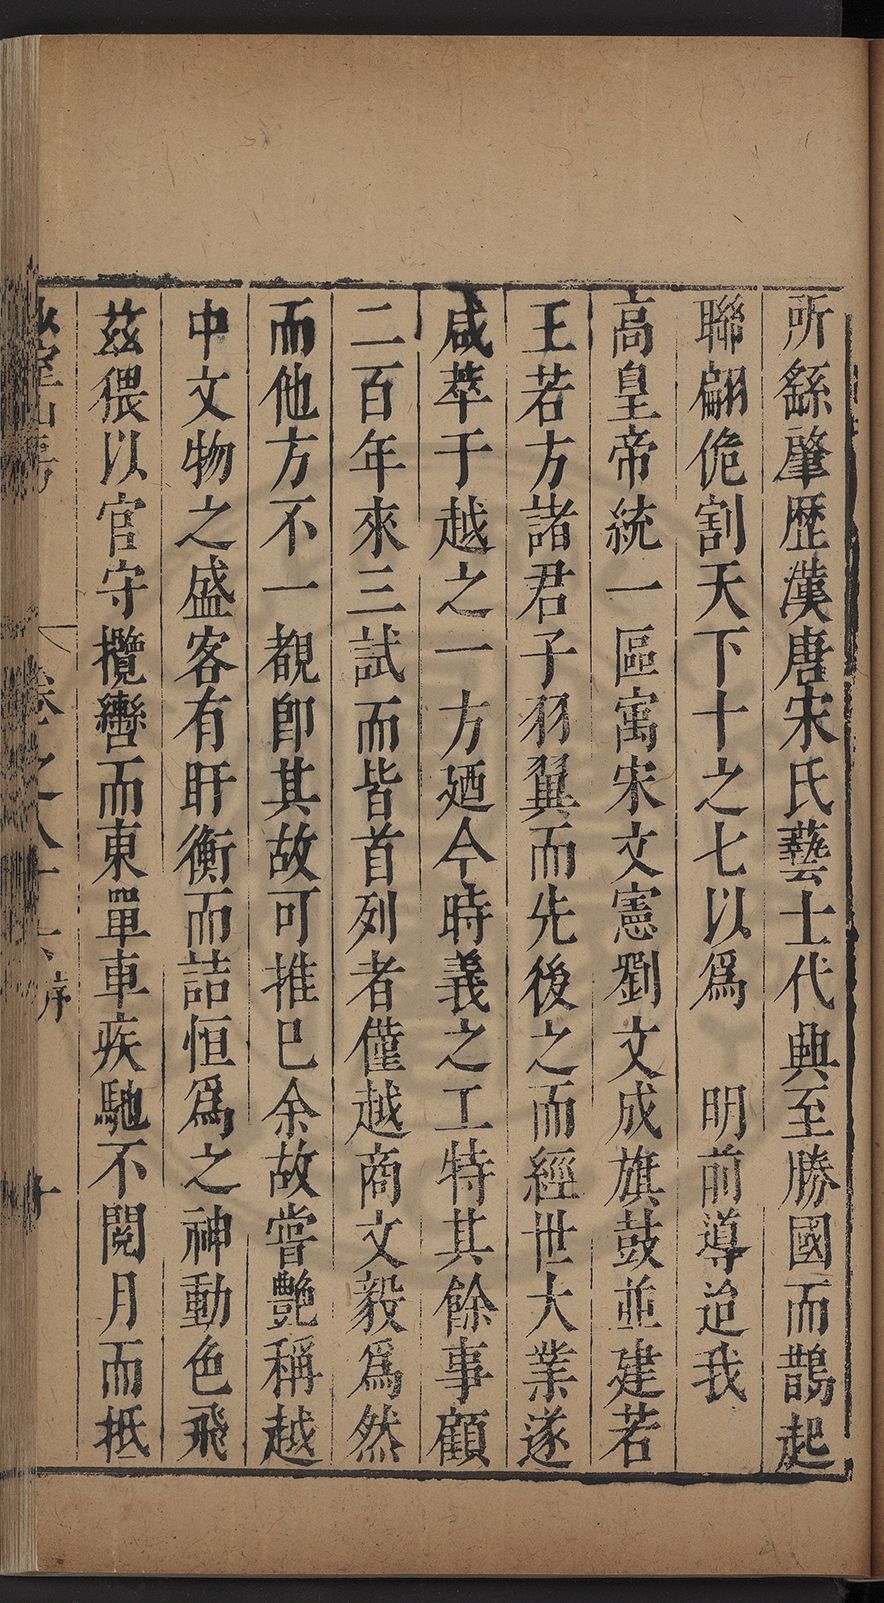 所繇肇歷漢唐宋氏藝士代興至勝國而鵲起
聯翩侂割天下十之七以爲　明前導迨我
高皇帝統一區㝢宋文憲劉文成旗鼓並建若
王若方諸君子羽翼而先後之而經世大業遂
咸萃于越之一方廼今時義之工特其餘事顧
二百年來三試而皆首列者僅越商文毅爲然
而他方不一覩卽其故可推已余故嘗艷稱越
中文物之盛客有盱衡而詰恒爲之神動色飛
茲猥以官守攬轡而東單車疾馳不閱月而抵
卷之八十六 序 十